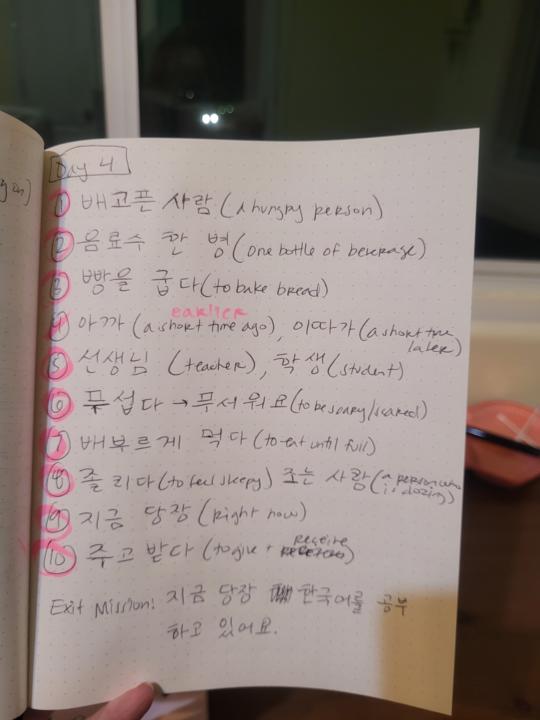 g on)
Day 4
① 배고픈 사람 (a hungry person)
② 음료수 한 병 (one bottle of beverage)
③ 빵을 굽다 (to bake bread)
earlier
④ 아까 (a short time ago), 이따가 (a short time
later)
⑤ 선생님 (teacher), 학생 (student)
⑥ 무섭다 → 무서워요 (to be scary/scared)
⑦ 배부르게 먹다 (to eat until full)
⑧ 졸리다 (to feel sleepy) 조는 사람 (a person who
is dozing)
⑨ 지금 당장 (right now)
receive
⑩ 주고 받다 (to give +
Exit Mission: 지금 당장 한국어를 공부
하고 있어요.